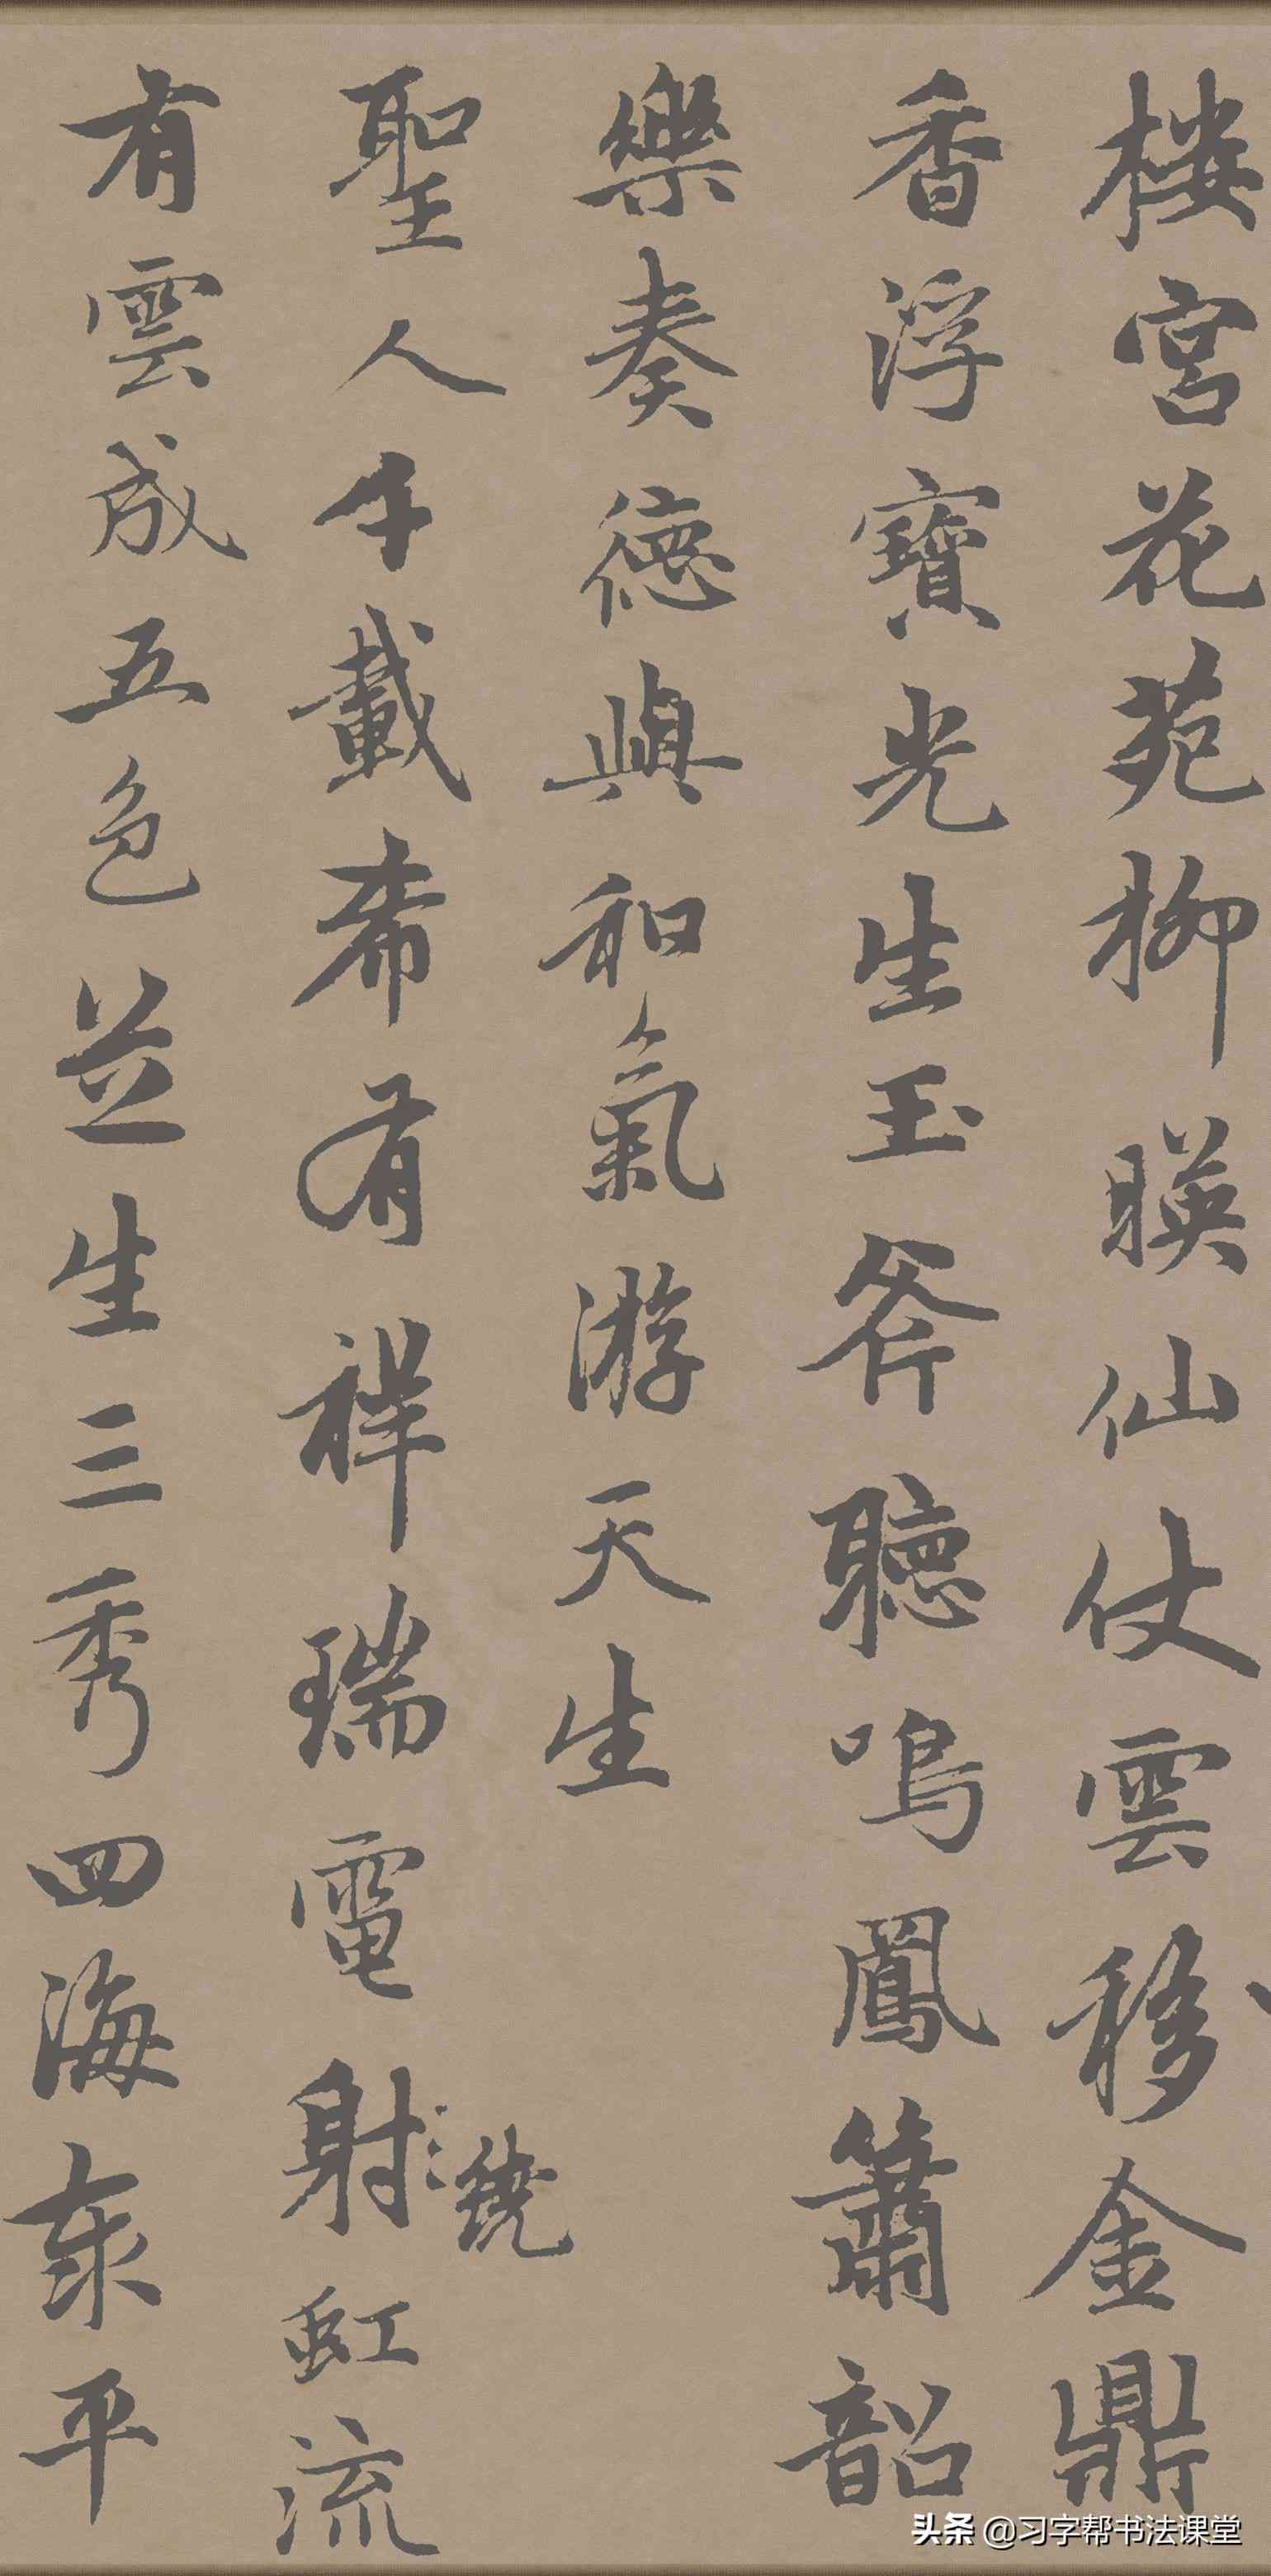 楼宮花苑柳暎仙仗雲移金鼎
香浮寶光生玉斧聴鳴鳳簫韶
樂奏德與和氣游天生
聖人千載希有祥瑞電射虹流
繞
有雲成五色並生三秀四海泰平
头条 @习字帮书法课堂